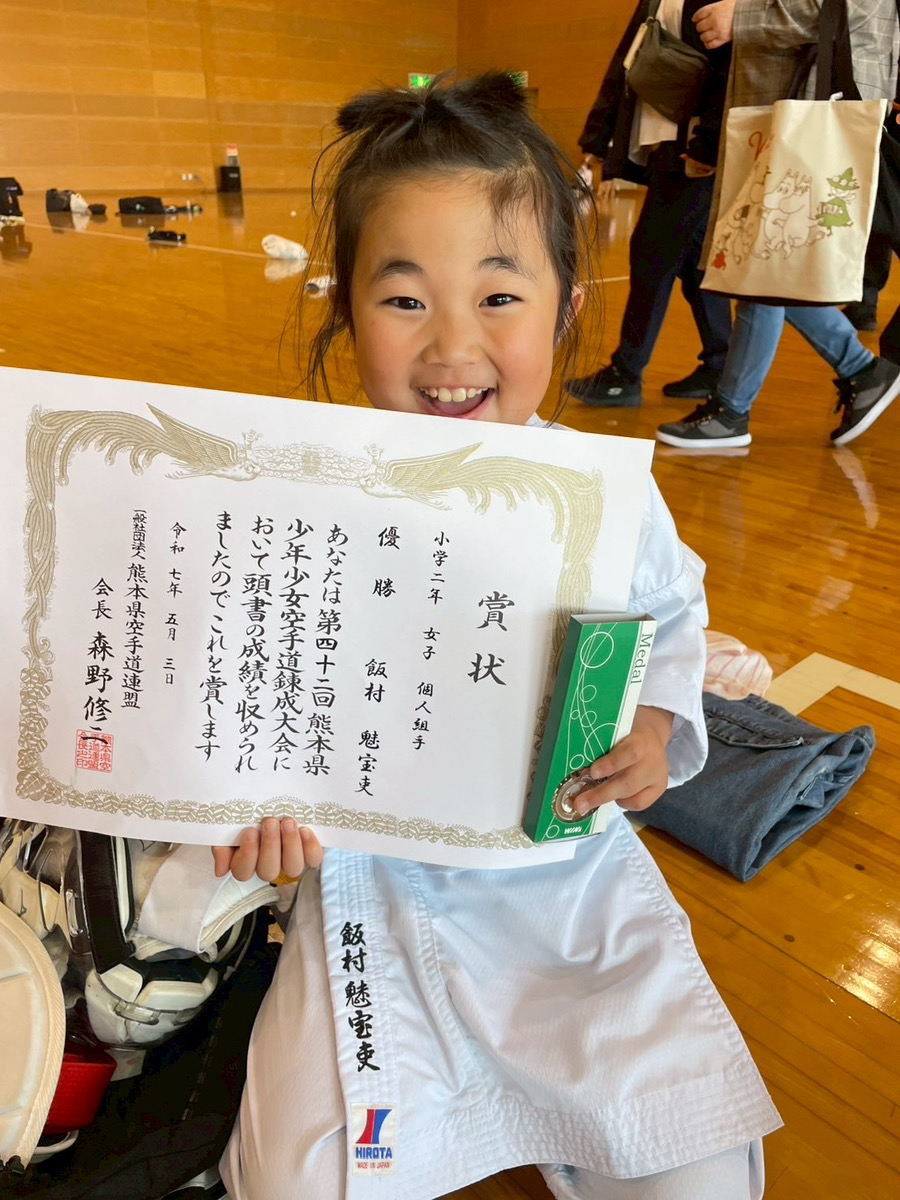 賞状
小学二年 女子 個人組手
優勝 飯村 魅宝吏
あなたは第四十二回熊本県
少年少女空手道錬成大会に
おいて頭書の成績を収められ
ましたのでこれを賞します
令和七年 五月 三日
一般社団法人 熊本県空手道連盟
会長 森野修一
Medal
飯村魅宝吏
HIROTA
MADE IN JAPAN